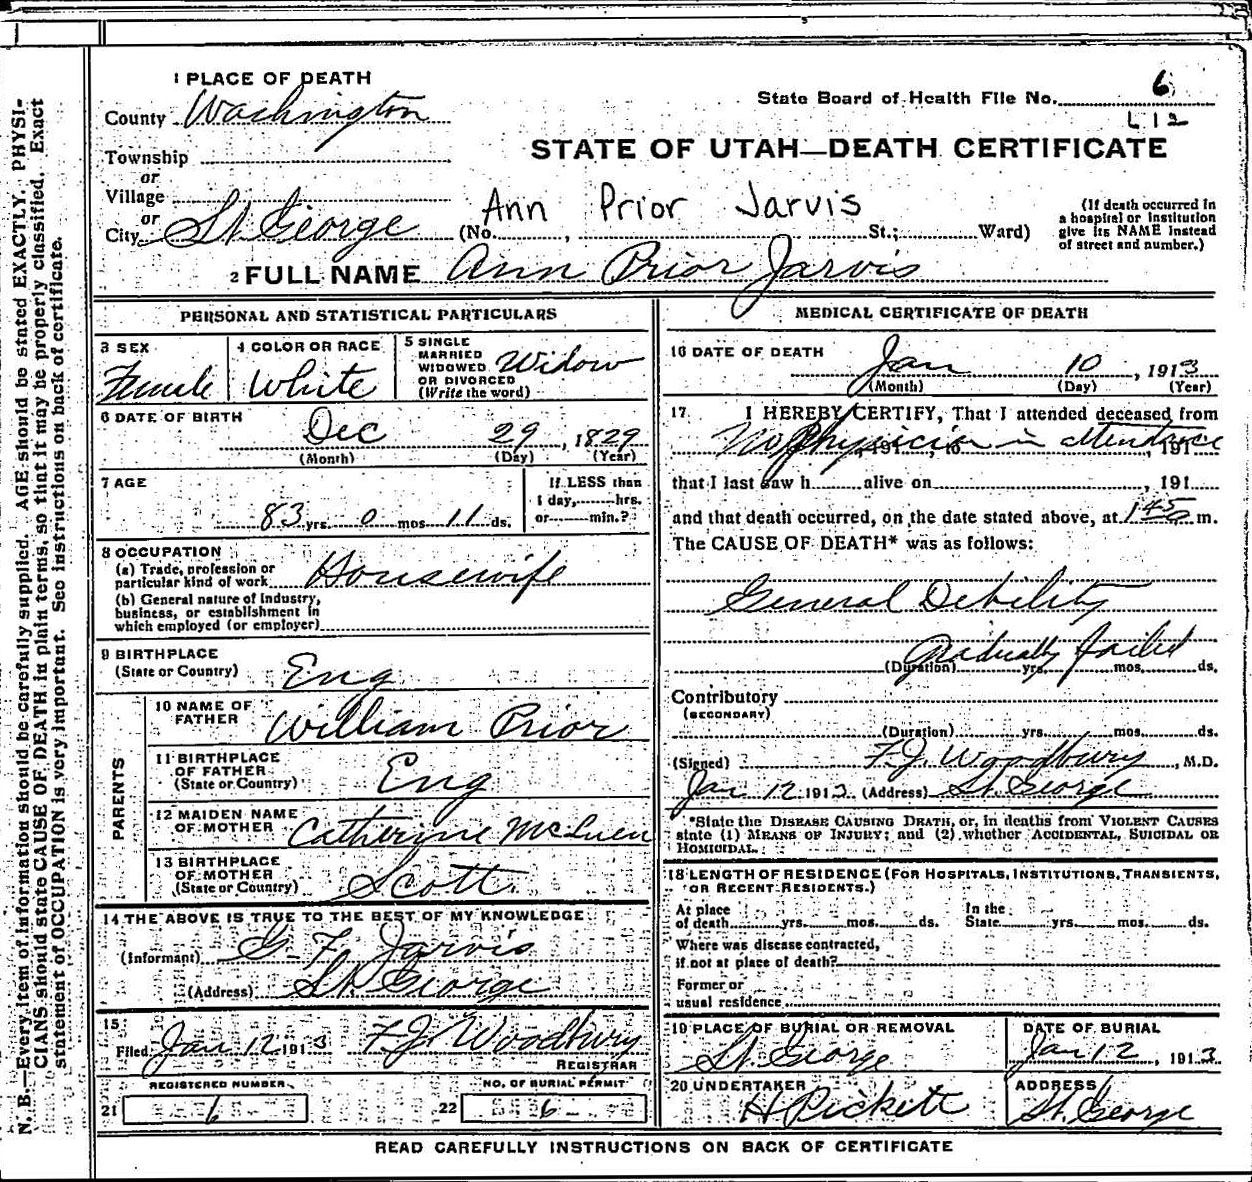 N. B.—Every item of information should be carefully supplied. AGE should be stated EXACTLY. PHYSI-
CIANS should state CAUSE OF DEATH in plain terms, so that it may be properly classified. Exact
statement of OCCUPATION is very important. See instructions on back of certificate.
1 PLACE OF DEATH
County Washington
State Board of Health File No. 6
L12
Township
or
Village
or
City St. George
STATE OF UTAH—DEATH CERTIFICATE
Ann Prior Jarvis
(No. , St.; Ward)
(If death occurred in
a hospital or institution
give its NAME instead
of street and number.)
2 FULL NAME Ann Prior Jarvis
PERSONAL AND STATISTICAL PARTICULARS
3 SEX
Female
4 COLOR OR RACE
White
5 SINGLE
MARRIED
WIDOWED
OR DIVORCED
(Write the word)
Widow
6 DATE OF BIRTH
Dec 29, 1829
(Month) (Day) (Year)
7 AGE
83 yrs. 0 mos. 11 ds.
If LESS than
1 day, hrs.
or min.?
8 OCCUPATION
(a) Trade, profession or
particular kind of work Housewife
(b) General nature of industry,
business, or establishment in
which employed (or employer)
9 BIRTHPLACE
(State or Country) Eng
PARENTS
10 NAME OF
FATHER William Prior
11 BIRTHPLACE
OF FATHER
(State or Country) Eng
12 MAIDEN NAME
OF MOTHER Catherine McLuen
13 BIRTHPLACE
OF MOTHER
(State or Country) Scott.
14 THE ABOVE IS TRUE TO THE BEST OF MY KNOWLEDGE
(Informant) G. F. Jarvis
(Address) St. George
15
Filed Jan 12 1913 F. J. Woodbury
REGISTRAR
REGISTERED NUMBER
21 6
NO. OF BURIAL PERMIT
22 6
MEDICAL CERTIFICATE OF DEATH
16 DATE OF DEATH
Jan 10, 1913
(Month) (Day) (Year)
17. I HEREBY CERTIFY, That I attended deceased from
No Physician in attendance
, 191 , to , 191
that I last saw h alive on , 191
and that death occurred, on the date stated above, at 1 45 m.
The CAUSE OF DEATH* was as follows:
General Debility
Gradually failed
(Duration) yrs. mos. ds.
Contributory
(SECONDARY)
(Duration) yrs. mos. ds.
(Signed) F. J. Woodbury, M.D.
Jan 12 1913 (Address) St. George
*State the DISEASE CAUSING DEATH, or, in deaths from VIOLENT CAUSES
state (1) MEANS OF INJURY; and (2) whether ACCIDENTAL, SUICIDAL OR
HOMICIDAL.
18 LENGTH OF RESIDENCE (FOR HOSPITALS, INSTITUTIONS, TRANSIENTS,
OR RECENT RESIDENTS.)
At place
of death yrs. mos. ds.
In the
State yrs. mos. ds.
Where was disease contracted,
if not at place of death?
Former or
usual residence
19 PLACE OF BURIAL OR REMOVAL
St. George
DATE OF BURIAL
Jan 12, 1913
20 UNDERTAKER
H Pickett
ADDRESS
St. George
READ CAREFULLY INSTRUCTIONS ON BACK OF CERTIFICATE